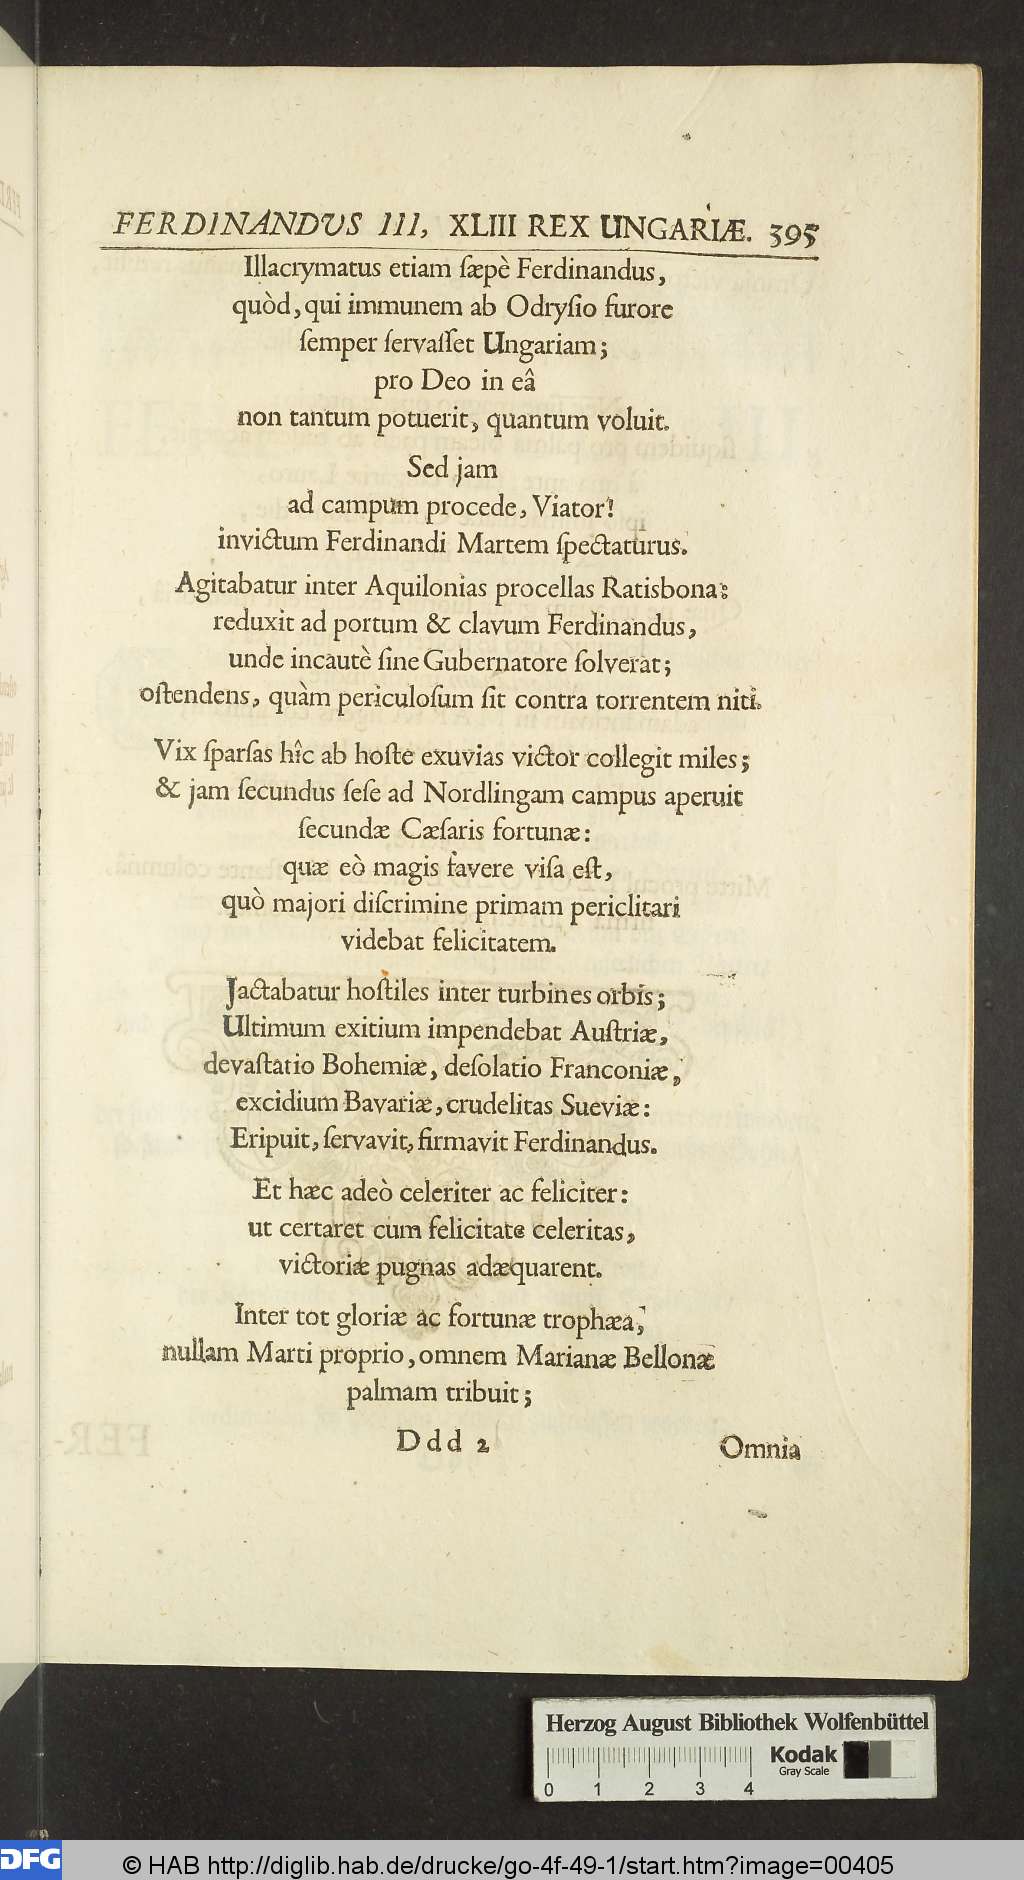 FERDINANDVS III, XLIII REX UNGARIÆ. 395
Illacrymatus etiam ſæpè Ferdinandus,
quòd, qui immunem ab Odryſio furore
ſemper ſervaſſet Ungariam;
pro Deo in eâ
non tantum potuerit, quantum voluit.
Sed jam
ad campum procede, Viator!
invictum Ferdinandi Martem ſpectaturus.
Agitabatur inter Aquilonias procellas Ratisbona:
reduxit ad portum & clavum Ferdinandus,
unde incautè ſine Gubernatore ſolverat;
oſtendens, quàm periculoſum ſit contra torrentem niti.
Vix ſparſas hîc ab hoſte exuvias victor collegit miles;
& jam ſecundus ſeſe ad Nordlingam campus aperuit
ſecundæ Cæſaris fortunæ:
quæ eò magis favere viſa eſt,
quò majori diſcrimine primam periclitari
videbat felicitatem.
Jactabatur hoſtiles inter turbines orbis;
Ultimum exitium impendebat Auſtriæ,
devaſtatio Bohemiæ, deſolatio Franconiæ,
excidium Bavariæ, crudelitas Sueviæ:
Eripuit, ſervavit, firmavit Ferdinandus.
Et hæc adeò celeriter ac feliciter:
ut certaret cum felicitate celeritas,
victoriæ pugnas adæquarent.
Inter tot gloriæ ac fortunæ trophæa,
nullam Marti proprio, omnem Marianæ Bellonæ
palmam tribuit;
Ddd 2 Omnia
Herzog August Bibliothek Wolfenbüttel
Kodak
Gray Scale
0 1 2 3 4
DFG © HAB http://diglib.hab.de/drucke/go-4f-49-1/start.htm?image=00405